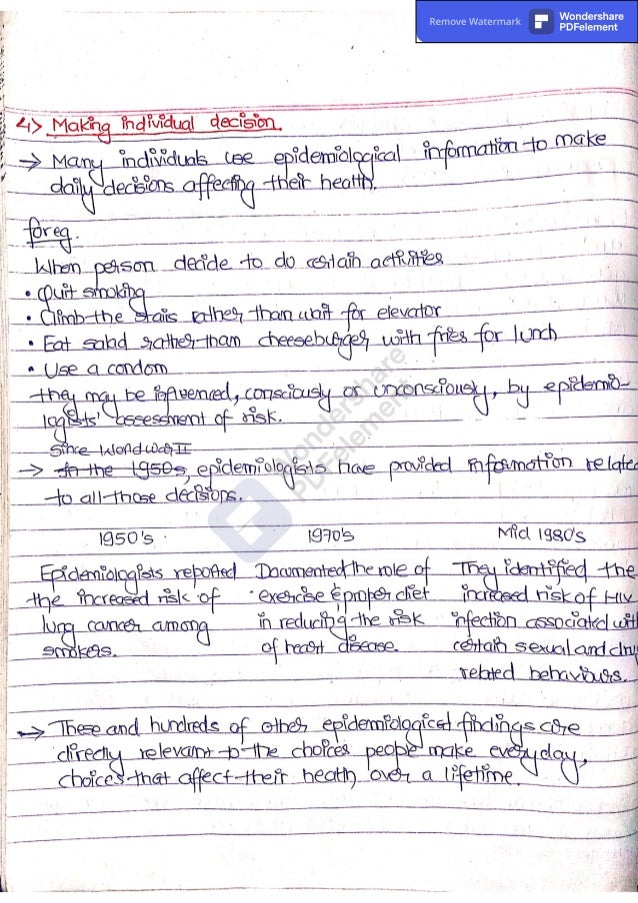 Remove Watermark
Wondershare
PDFelement
4> Making individual decision.
→ Many individuals use epidemiological information to make
daily decisions affecting their health.
for eg.
When person decide to do certain activities
• Quit smoking
• Climb the stairs rather than wait for elevator
• Eat salad rather than cheeseburger with fries for lunch
• Use a condom
they may be influenced, consciously or unconsciously, by epidemio-
logists' assessment of risk.
Since World War II
→ In the 1950s, epidemiologists have provided information related
to all those decisions.
1950's 1970's Mid 1980's
Epidemiologists reported Documented the role of They identified the
the increased risk of exercise & proper diet increased risk of HIV
lung cancer among in reducing the risk infection associated with
smokers. of heart disease. certain sexual and drug
related behaviours.
→ These and hundreds of other epidemiological findings are
directly relevant to the choices people make everyday,
choices that affect their health over a lifetime.
Wondershare
PDFelement